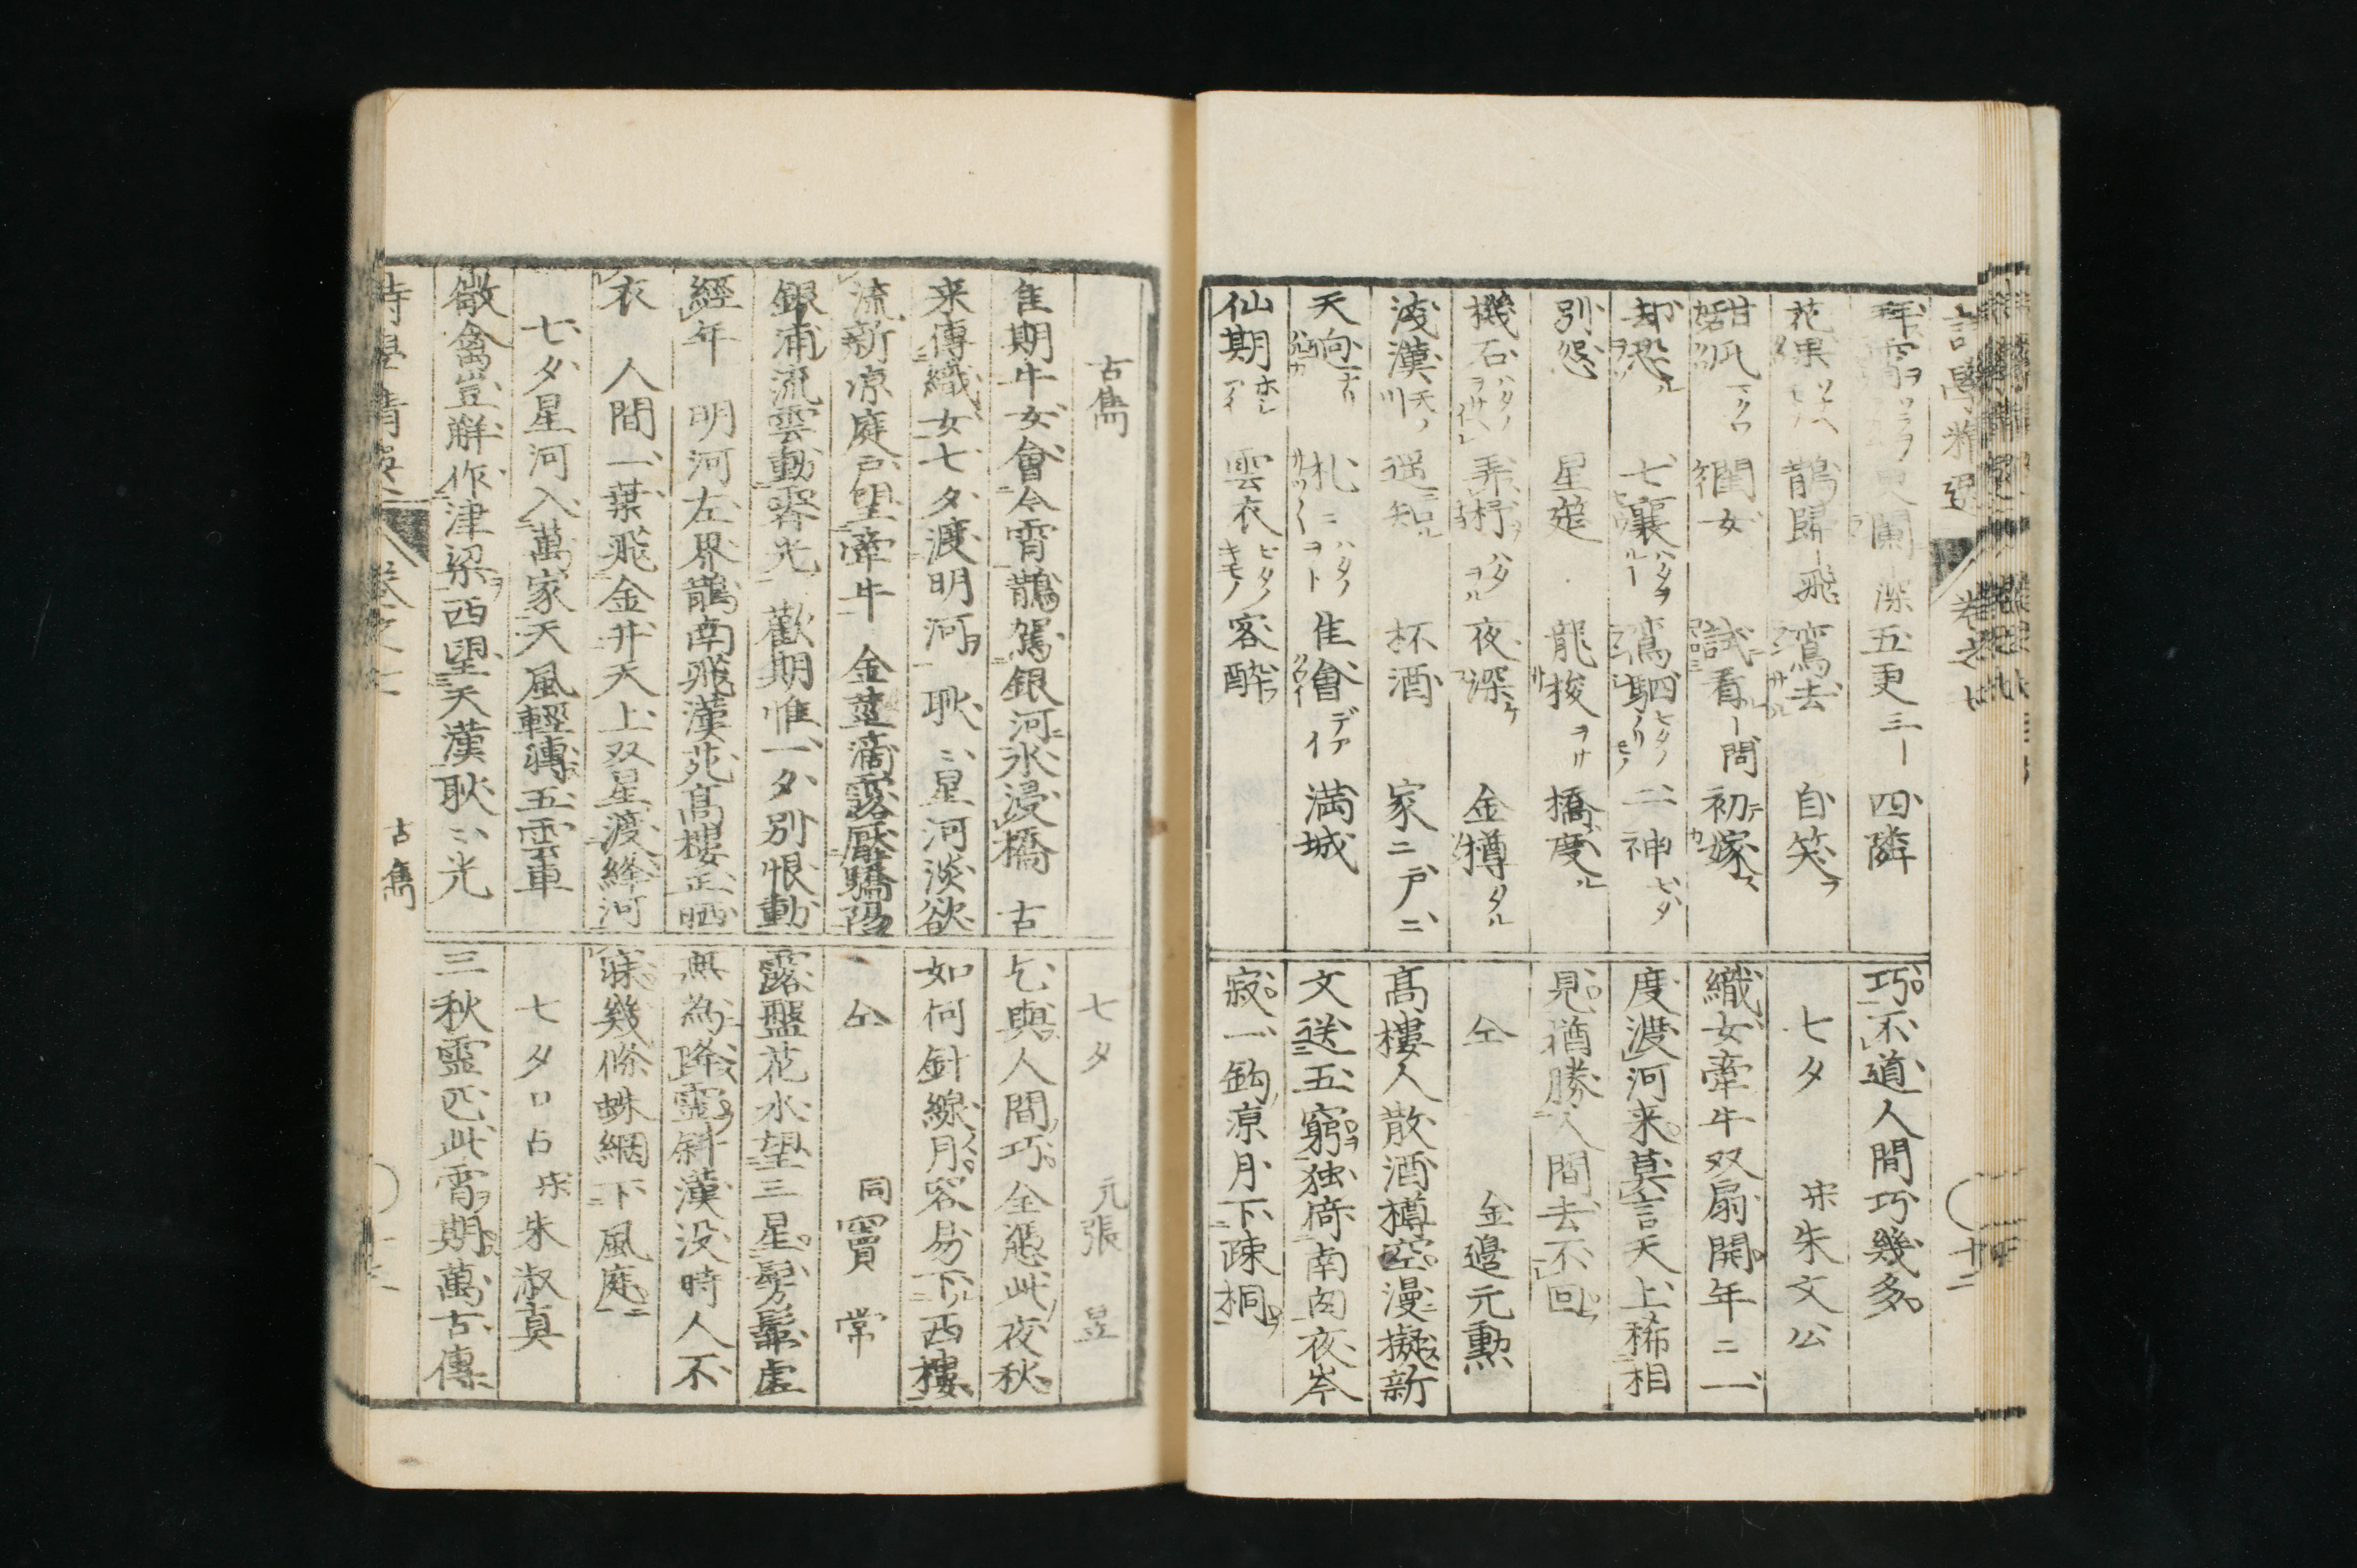 四隣
花果 鵲歸 飛 鸞去 自笑
閨女 試看 問 初嫁
却恐 七襄 鸞駟 二神
別怨 星筵 龍梭 橋度
機石 弄杼 夜深 金樽
淺漢 遥知 杯酒 家ニ戸ニ
天向 札ニ 佳會 満城
仙期 雲衣 容酔
巧不道人間巧幾多
七夕 宋朱文公
織女牽牛双扇開年ニ一
度渡河来莫言天上稀相
見猶勝人間去不回
仝 金邉元勲
髙樓人散酒樽空漫擬新
文送五窮独倚南囱夜岑
寂一鈎凉月下疎桐
古雋
隹期牛女會今宵鵲駕銀河氷浸橋 古
来傳織女七夕渡明河 耿ミ星河淡欲
流新凉庭戸望牽牛 金莖滴露厭驕陽
銀浦流雲動霽光 歡期惟一夕別恨動
經年 明河左界鵲南飛漢苑髙樓正晒
衣 人間一葉飛金井天上双星渡絳河
七夕星河入萬家天風輕轉五雲車
微禽豈解作津梁西望天漢耿ミ光
古雋
七夕 元張昱
乞與人間巧全憑此夜秋
如何針線月容易下西樓
仝 同竇常
露盤花水望三星髣髴虚
無為降靈斜漢没時人不
寐幾條蛛網下風庭
七夕口占 宋朱淑真
三秋靈匹此宵期萬古傳